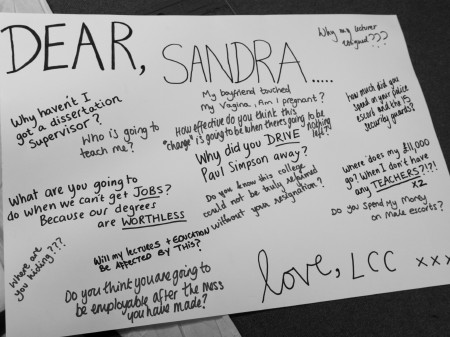 DEAR, SANDRA.....
Why my lecturer
resigned???
Why haven't I
got a dissertation
supervisor?
Who is going to
teach me?
My boyfriend touched
my vagina. Am I pregnant?
How effective do you think this
"change" is going to be when theres going to be nothing
left?
Why did you DRIVE
Paul Simpson away?
how much did you
spend on your police
escort and the 15
security guards?
What are you going to
do when we can't get JOBS?!
Because our degrees
are WORTHLESS
Do you know this college
could not be truly reclaimed
without your resignation?
where does my £11,000
go? When I don't have
any TEACHERS?!?!
x2
Do you spend my money
on male escorts?
Where are
you hiding???
Will my lectures + EDUCATION
BE AFFECTED BY THIS?
Do you think you are going to
be employable after the mess
you have made?
love, LCC xxx